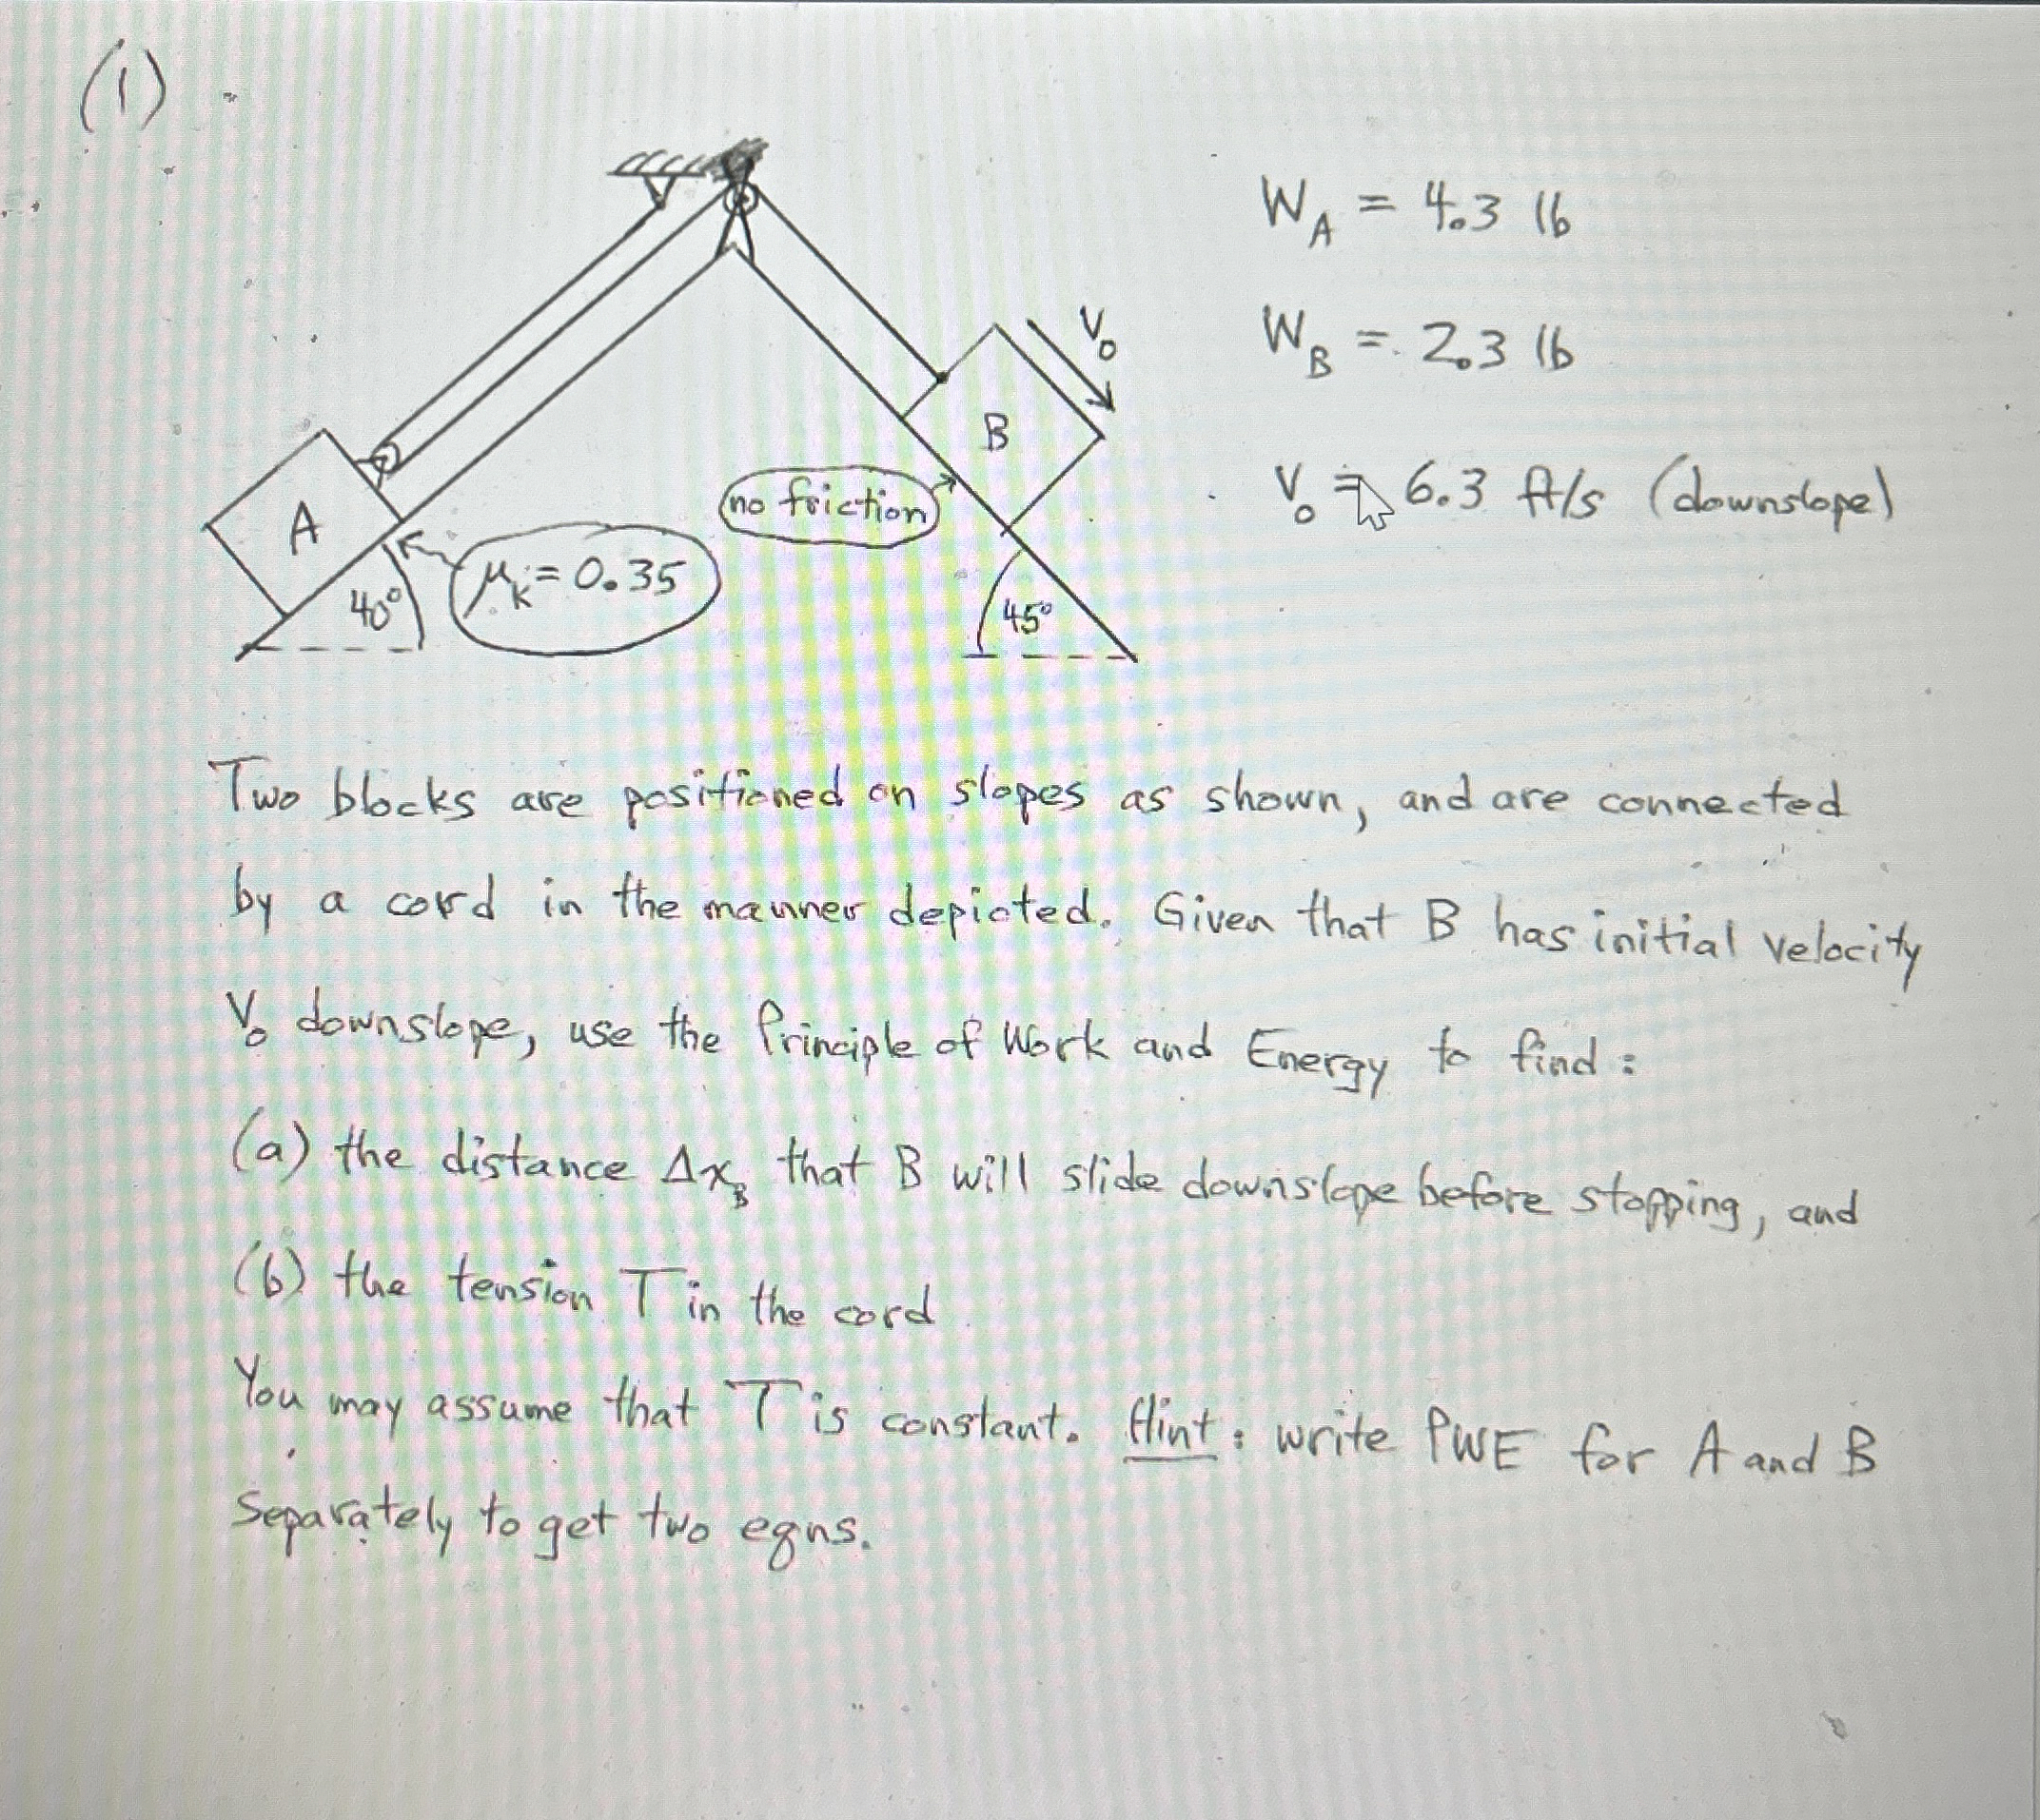 (1)
W_A = 4.3 lb
W_B = 2.3 lb
V_0 = 6.3 ft/s (downslope)
V_0
B
no friction
A
μ_k = 0.35
40°
45°
Two blocks are positioned on slopes as shown, and are connected
by a cord in the manner depicted. Given that B has initial velocity
V_0 downslope, use the Principle of Work and Energy to find:
(a) the distance Δx_B that B will slide downslope before stopping, and
(b) the tension T in the cord
You may assume that T is constant. Hint: write PWE for A and B
separately to get two eqns.